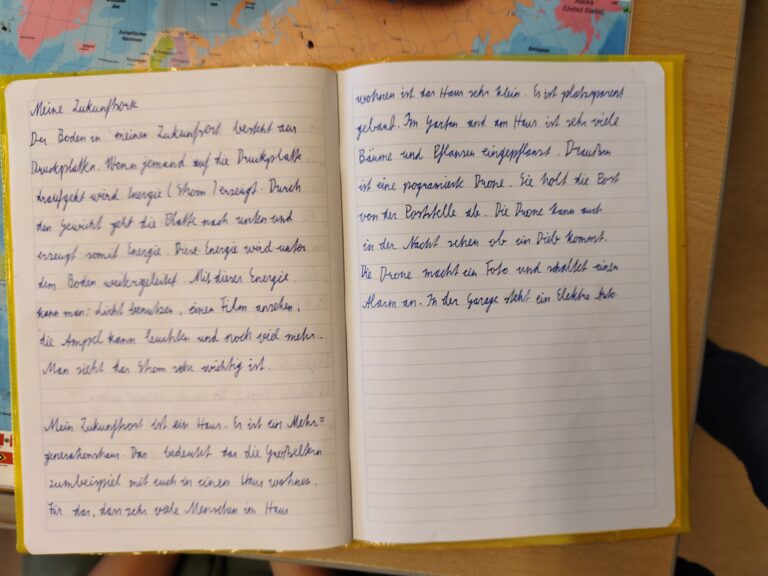 Meine Zukunftsorte
Der Boden in meinen Zukunfsort besteht aus
Druckplatten. Wenn jemand auf die Druckplatte
draufgeht wird Energie (Strom) erzeugt. Durch
den Gewicht geht die Platte nach unten und
erzeugt somit Energie. Diese Energie wird unter
dem Boden weitergeleitet. Mit dieser Energie
kann man: Licht benutzen, einen Film ansehen,
die Ampel kann leuchten und noch viel mehr.
Man sieht das Strom sehr wichtig ist.
Mein Zukunftsort ist ein Haus. Es ist ein Mehr=
generationshaus. Das bedeutet das die Großeltern
zumbeispiel mit euch in einen Haus wohnen.
Für das, dass sehr viele Menschen im Haus
wohnen ist das Haus sehr klein. Es ist platzsparent
gebaut. Im Garten und am Haus ist sehr viele
Bäume und Pflanzen eingepflanzt. Draußen
ist eine pogramierte Drone. Sie holt die Post
von der Poststelle ab. Die Drone kann auch
in der Nacht sehen ob ein Dieb kommt.
Die Drone macht ein Foto und schaltet einen
Alarm an. In der Garage steht ein Elektro Auto.
Alaska
(United States)